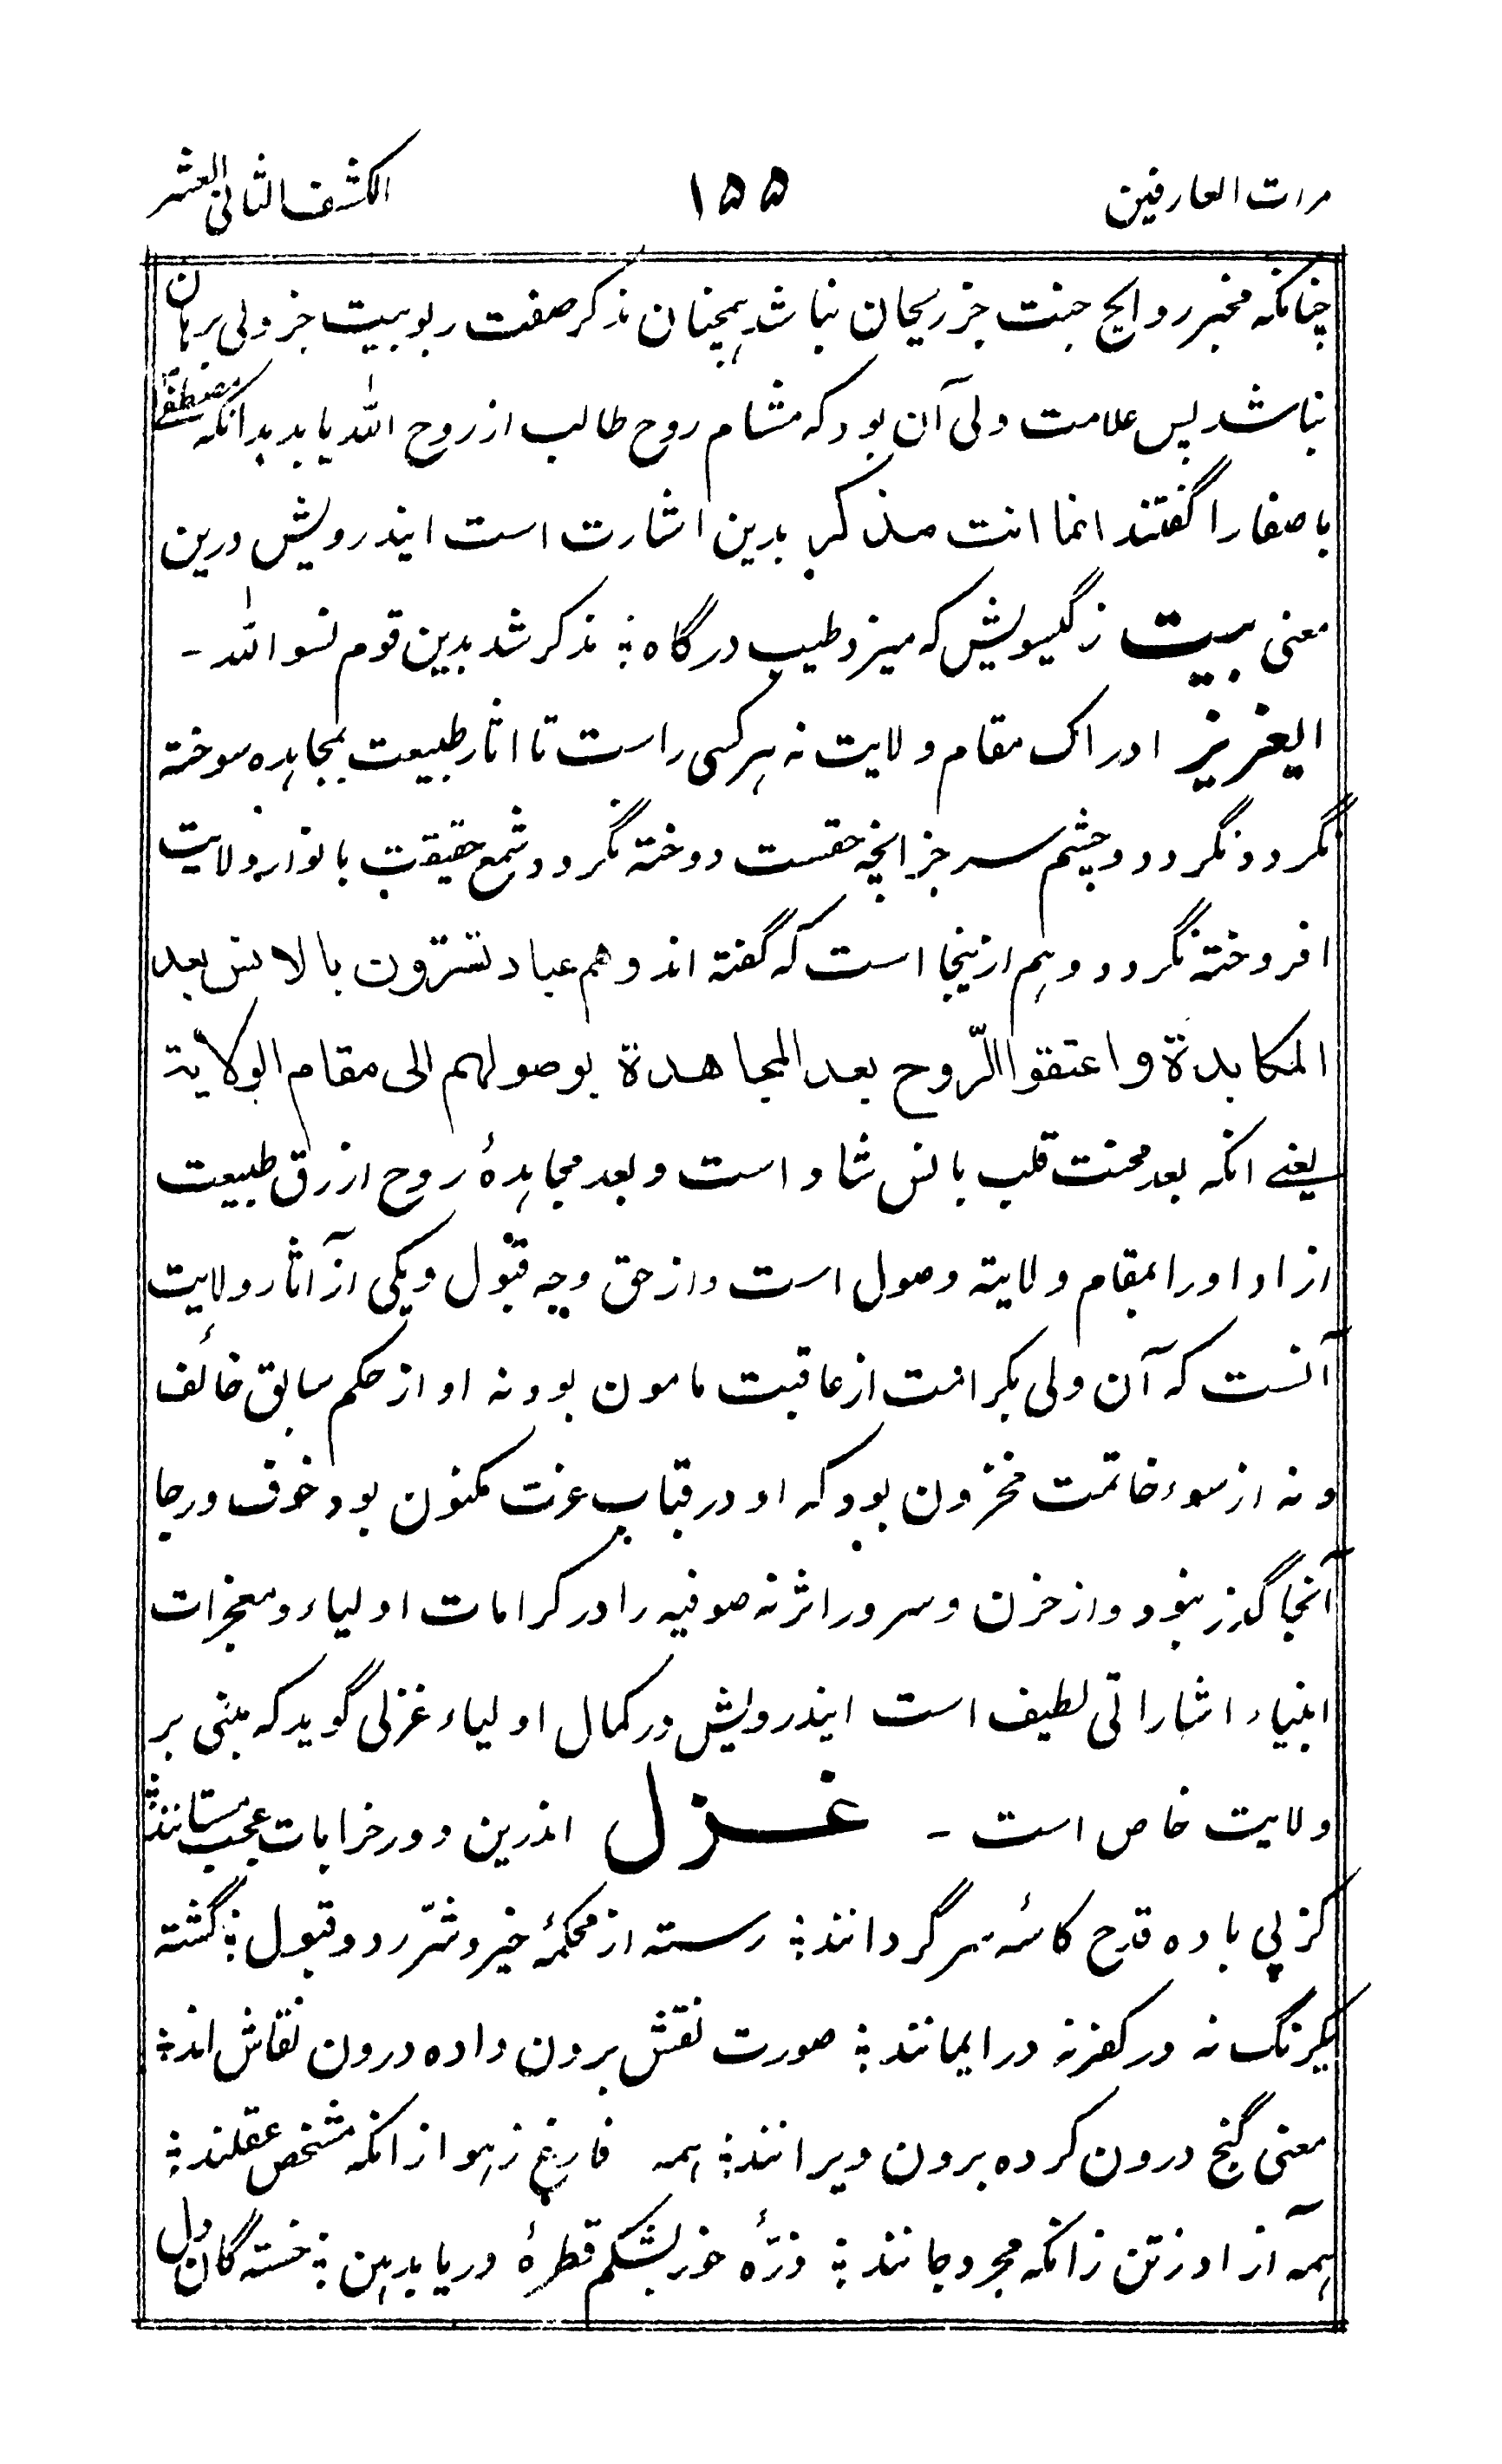 مرات العارفین ۱۵۵ الکشف الثانی العشر
چنانکه مخبر روایح جنت جز ریحان نباشد همچنان مذکر صفت ربوبیت جز ولی برهان
نباشد پس علامت ولی آن بود که مشام روح طالب از روح الله یابد بدانکه مصطفی
با صفا را گفتند انما انت مذکر بدین اشارت است ایندرویش درین
معنی بیت ز گیسویش که میزد طیب درگاه ؛ مذکر شد بدین قوم نسوا الله ـ
الیعزیز ادراک مقام ولایت نه هر کسی راست تا اثار طبیعت بمجاهده سوخته
نگردد نگردد و چشم سر جز انچه حقست دوخته نگردد و شمع حقیقت بانوار ولایت
افروخته نگردد و هم ازینجا است که گفته اند و هم عباد تسترون بالانس بعد
المکابدة و اعتقوا الروح بعد المجاهدة بوصولهم الی مقام الولایة
یعنے انکه بعد محنت قلب بانس شاد است و بعد مجاهدهٔ روح از رق طبیعت
ازاد اورا بمقام ولایته وصول است و از حق وجه قبول و یکی از آثار ولایت
آنست که آن ولی بکرامت از عاقبت مامون بود نه او از حکم سابق خائف
و نه از سوء خاتمت مخزون بود که او در قباب عزت مکنون بود خوف و رجا
آنجا گذر نبود و از حزن و سرور اثر نه صوفیه را در کرامات اولیاء و معجزات
انبیاء اشاراتی لطیف است ایندرویش در کمال اولیاء غزلی گوید که مبنی بر
ولایت خاص است ـ غزل اندرین دور خرابات عجب مستانند ؛
کز پی باده قدح کاسهٔ سر گردانند ؛ رسته از محکمهٔ خیر و شرّ رد و قبول ؛ گشته
یکرنگ نه در کفر نه در ایمانند ؛ صورت نقش برون داده درون نقاش اند ؛
معنی گنج درون کرده برون ویرانند ؛ همه فارغ ز هوا زانکه مشخص عقلند ؛
همه آزاد ز تن زانکه مجرد جانند ؛ ذرّهٔ خور بشکم قطرهٔ دریا بدهن ؛ خسته گان دل